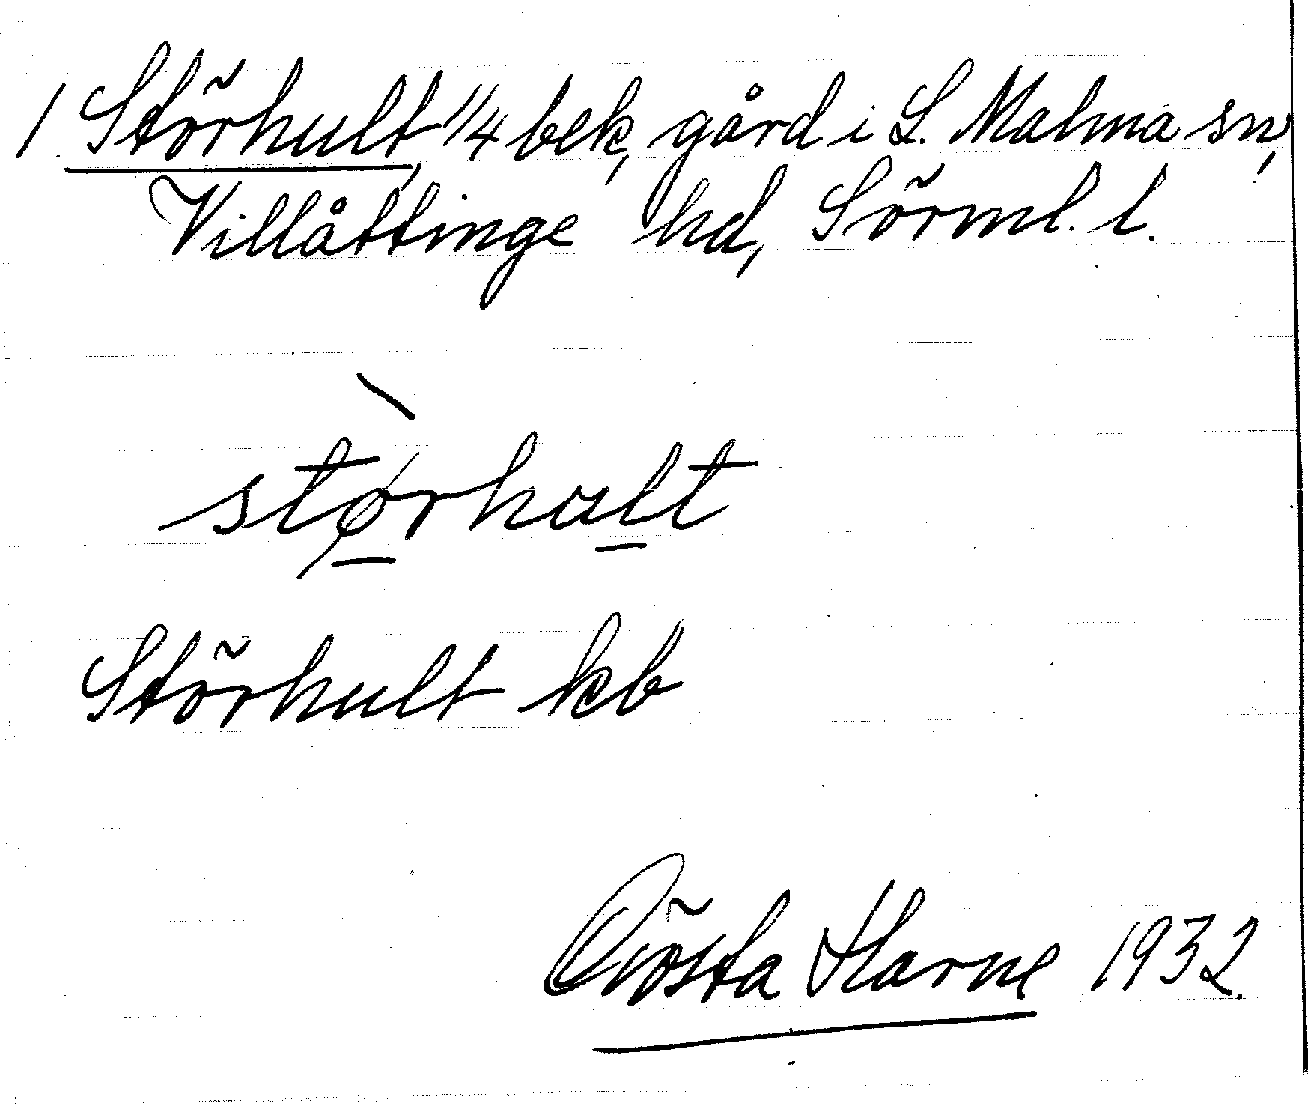 1 Störhult, 1/4 bek, gård i L. Malma sn,
Villåttinge hd, Sörml. l.
størhult
Störhult kb
Gösta Harne 1932.